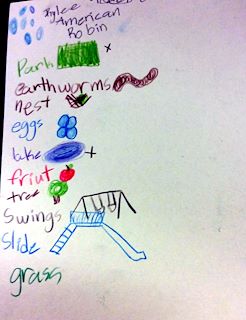 Rylee
American
Robin
Park x
earthworms
nest
eggs
lake +
friut
tree
Swings
Slide
grass